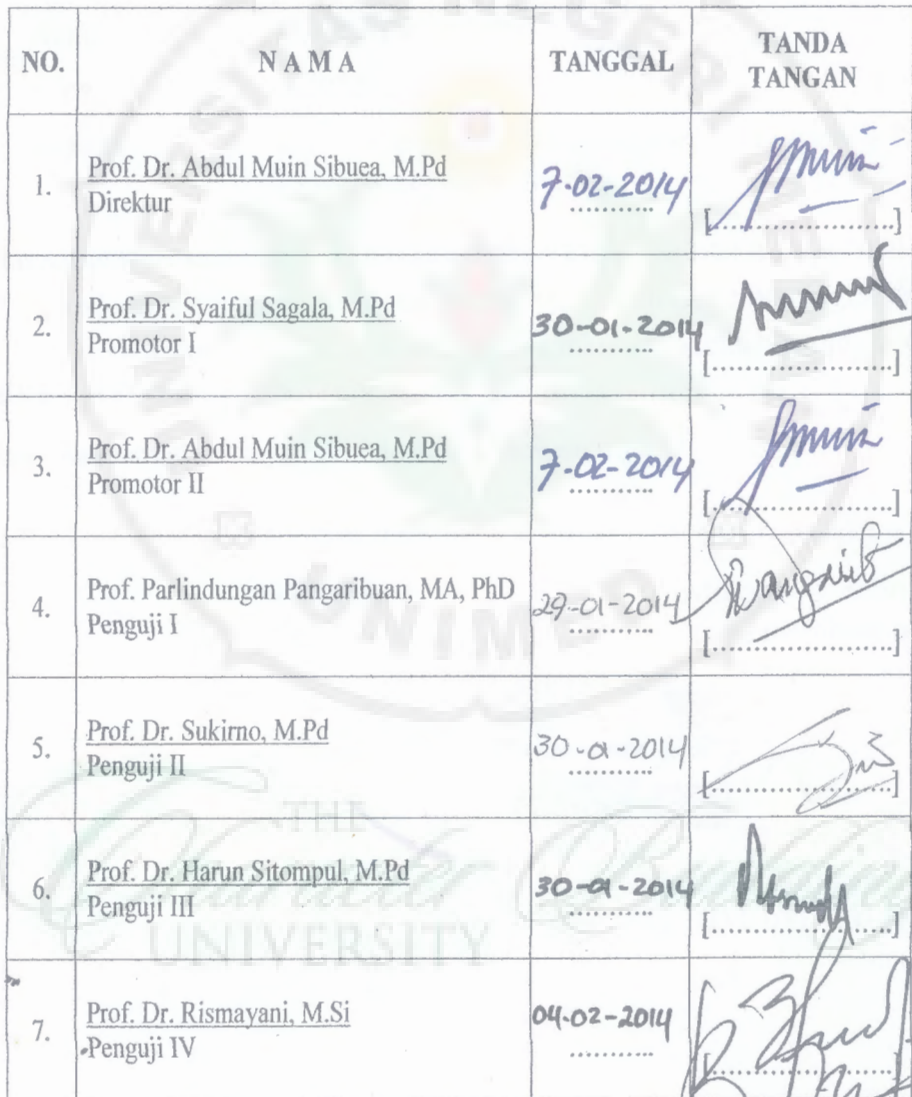 NO.
N A M A
TANGGAL
TANDA
TANGAN
1.
Prof. Dr. Abdul Muin Sibuea, M.Pd
Direktur
7-02-2014
[....................]
2.
Prof. Dr. Syaiful Sagala, M.Pd
Promotor I
30-01-2014
[....................]
3.
Prof. Dr. Abdul Muin Sibuea, M.Pd
Promotor II
7-02-2014
[....................]
4.
Prof. Parlindungan Pangaribuan, MA, PhD
Penguji I
29-01-2014
[....................]
5.
Prof. Dr. Sukirno, M.Pd
Penguji II
30-01-2014
[....................]
6.
Prof. Dr. Harun Sitompul, M.Pd
Penguji III
30-01-2014
[....................]
7.
Prof. Dr. Rismayani, M.Si
Penguji IV
04-02-2014
[....................]
UNIVERSITAS NEGERI MEDAN
UNIMED
THE
Character Building
UNIVERSITY